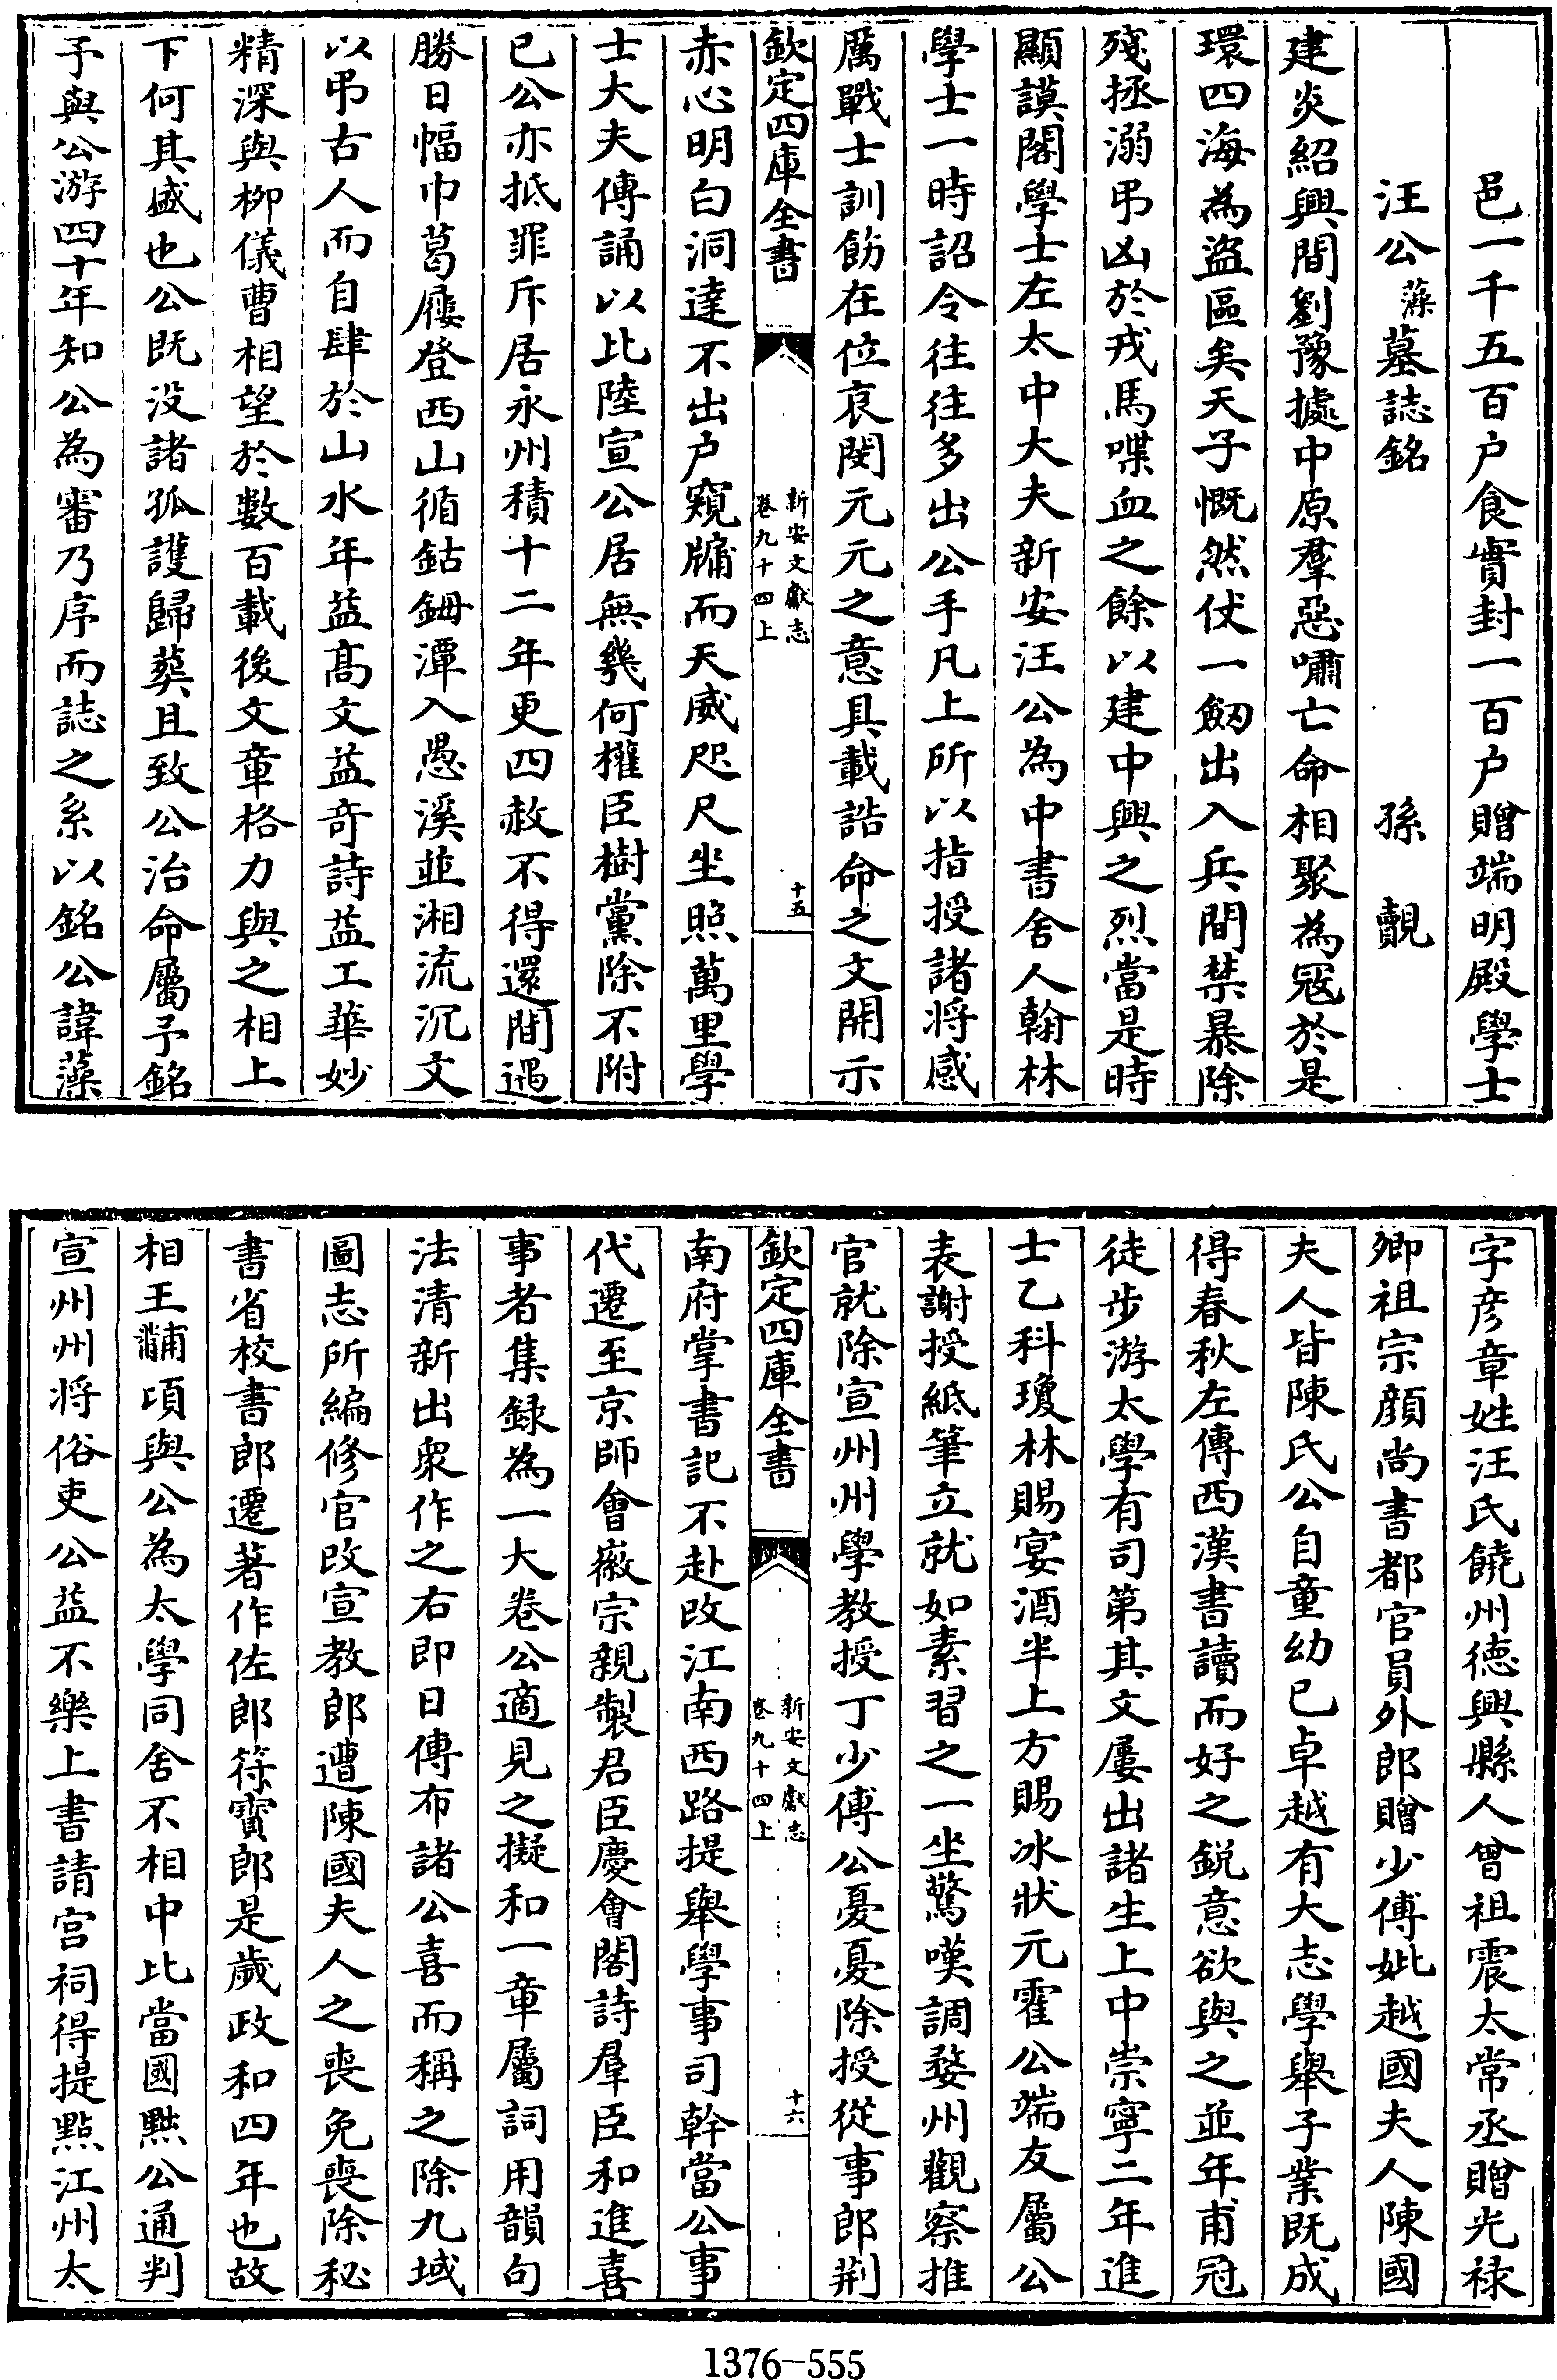 邑一千五百户食實封一百户贈端明殿學士
汪公藻墓誌銘　孫覿
建炎紹興間劉豫據中原羣惡嘯亡命相聚為冦於是
環四海為盜區矣天子慨然仗一劒出入兵間禁暴除
殘拯溺弔凶於戎馬喋血之餘以建中興之烈當是時
顯謨閣學士左太中大夫新安汪公為中書舍人翰林
學士一時詔令往往多出公手凡上所以指授諸将感
厲戰士訓飭在位哀閔元元之意具載誥命之文開示
欽定四庫全書
新安文獻志
卷九十四上
十五
赤心明白洞達不出户窺牖而天威咫尺坐照萬里學
士大夫傳誦以比陸宣公居無幾何權臣樹黨除不附
已公亦抵罪斥居永州積十二年更四赦不得還間遇
勝日幅巾葛屨登西山循鈷鉧潭入愚溪並湘流沉文
以弔古人而自肆於山水年益髙文益竒詩益工華妙
精深與栁儀曹相望於數百載後文章格力與之相上
下何其盛也公既没諸孤護歸葬且致公治命屬予銘
予與公游四十年知公為審乃序而誌之系以銘公諱藻
字彦章姓汪氏饒州徳興縣人曾祖震太常丞贈光禄
卿祖宗顔尚書都官員外郎贈少傅妣越國夫人陳國
夫人皆陳氏公自童幼已卓越有大志學舉子業既成
得春秋左傳西漢書讀而好之鋭意欲與之並年甫冠
徒步游太學有司第其文屢出諸生上中崇寧二年進
士乙科瓊林賜宴酒半上方賜冰狀元霍公端友屬公
表謝授紙筆立就如素習之一坐驚嘆調婺州觀察推
官就除宣州州學教授丁少傅公憂憂除授從事郎荆
欽定四庫全書
新安文獻志
卷九十四上
十六
南府掌書記不赴改江南西路提舉學事司幹當公事
代遷至京師會徽宗親製君臣慶會閣詩羣臣和進喜
事者集録為一大卷公適見之擬和一章屬詞用韻句
法清新出衆作之右即日傳布諸公喜而稱之除九域
圖志所編修官改宣教郎遭陳國夫人之喪免喪除秘
書省校書郎遷著作佐郎符寳郎是歲政和四年也故
相王黼頃與公為太學同舍不相中比當國黜公通判
宣州州将俗吏公益不樂上書請宫祠得提點江州太
1376-555